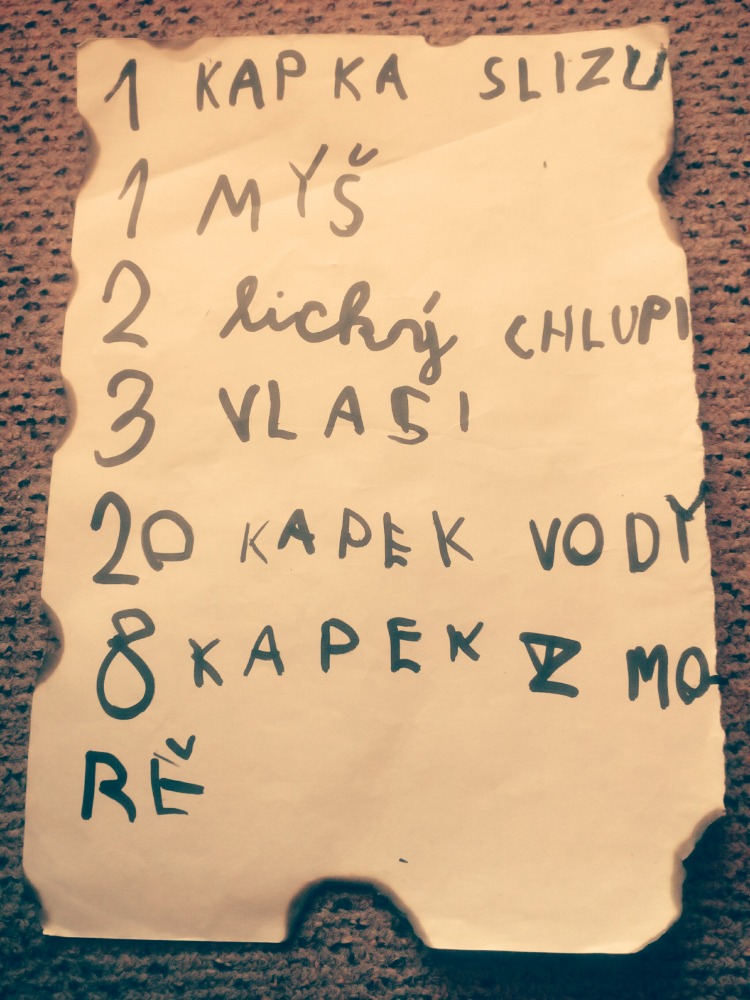 1 KAPKA SLIZU
1 MYŠ
2 lichý CHLUPI
3 VLASI
20 KAPEK VODY
8 KAPEK Z MO-
RĚ